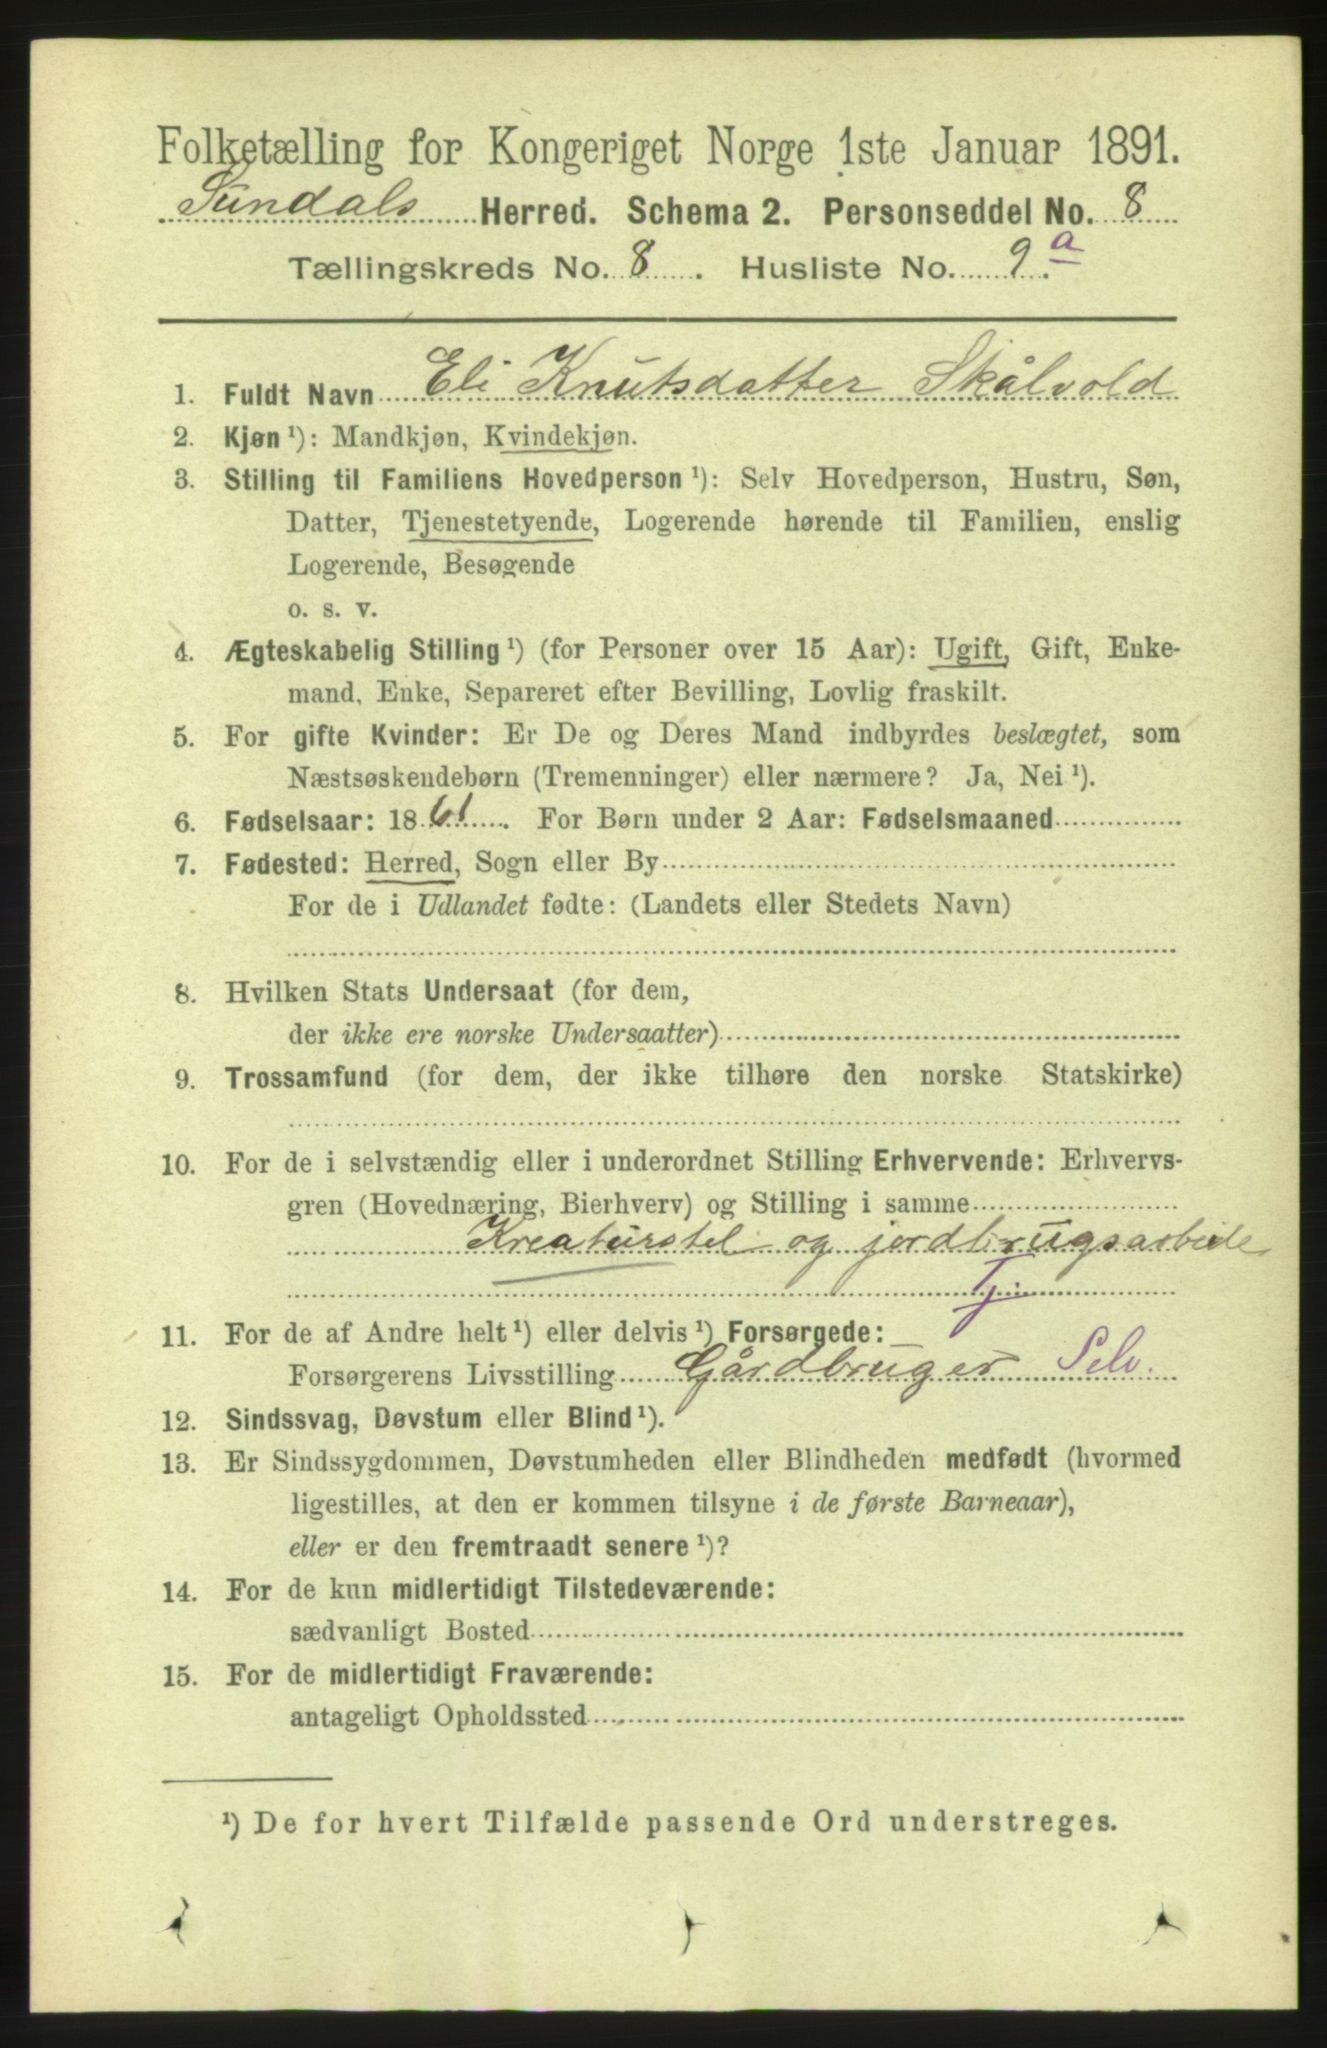 Folketælling for Kongeriget Norge 1ste Januar 1891.
Sundals Herred. Schema 2. Personseddel No. 8
Tællingskreds No. 8. Husliste No. 9.a
1. Fuldt Navn Eli Knutsdatter Skålvold
2. Kjøn ¹): Mandkjøn, Kvindekjøn.
3. Stilling til Familiens Hovedperson ¹): Selv Hovedperson, Hustru, Søn,
Datter, Tjenestetyende, Logerende hørende til Familien, enslig
Logerende, Besøgende
o. s. v.
4. Ægteskabelig Stilling ¹) (for Personer over 15 Aar): Ugift, Gift, Enke-
mand, Enke, Separeret efter Bevilling, Lovlig fraskilt.
5. For gifte Kvinder: Er De og Deres Mand indbyrdes beslægtet, som
Næstsøskendebørn (Tremenninger) eller nærmere? Ja, Nei ¹).
6. Fødselsaar: 1861. For Børn under 2 Aar: Fødselsmaaned
7. Fødested: Herred, Sogn eller By
For de i Udlandet fødte: (Landets eller Stedets Navn)
8. Hvilken Stats Undersaat (for dem,
der ikke ere norske Undersaatter)
9. Trossamfund (for dem, der ikke tilhøre den norske Statskirke)
10. For de i selvstændig eller i underordnet Stilling Erhvervende: Erhvervs-
gren (Hovednæring, Bierhverv) og Stilling i samme
Kreaturstel og jordbrugsarbeide
Tj.
11. For de af Andre helt ¹) eller delvis ¹) Forsørgede:
Forsørgerens Livsstilling Gårdbruger Selv.
12. Sindssvag, Døvstum eller Blind ¹).
13. Er Sindssygdommen, Døvstumheden eller Blindheden medfødt (hvormed
ligestilles, at den er kommen tilsyne i de første Barneaar),
eller er den fremtraadt senere ¹)?
14. For de kun midlertidigt Tilstedeværende:
sædvanligt Bosted
15. For de midlertidigt Fraværende:
antageligt Opholdssted
¹) De for hvert Tilfælde passende Ord understreges.